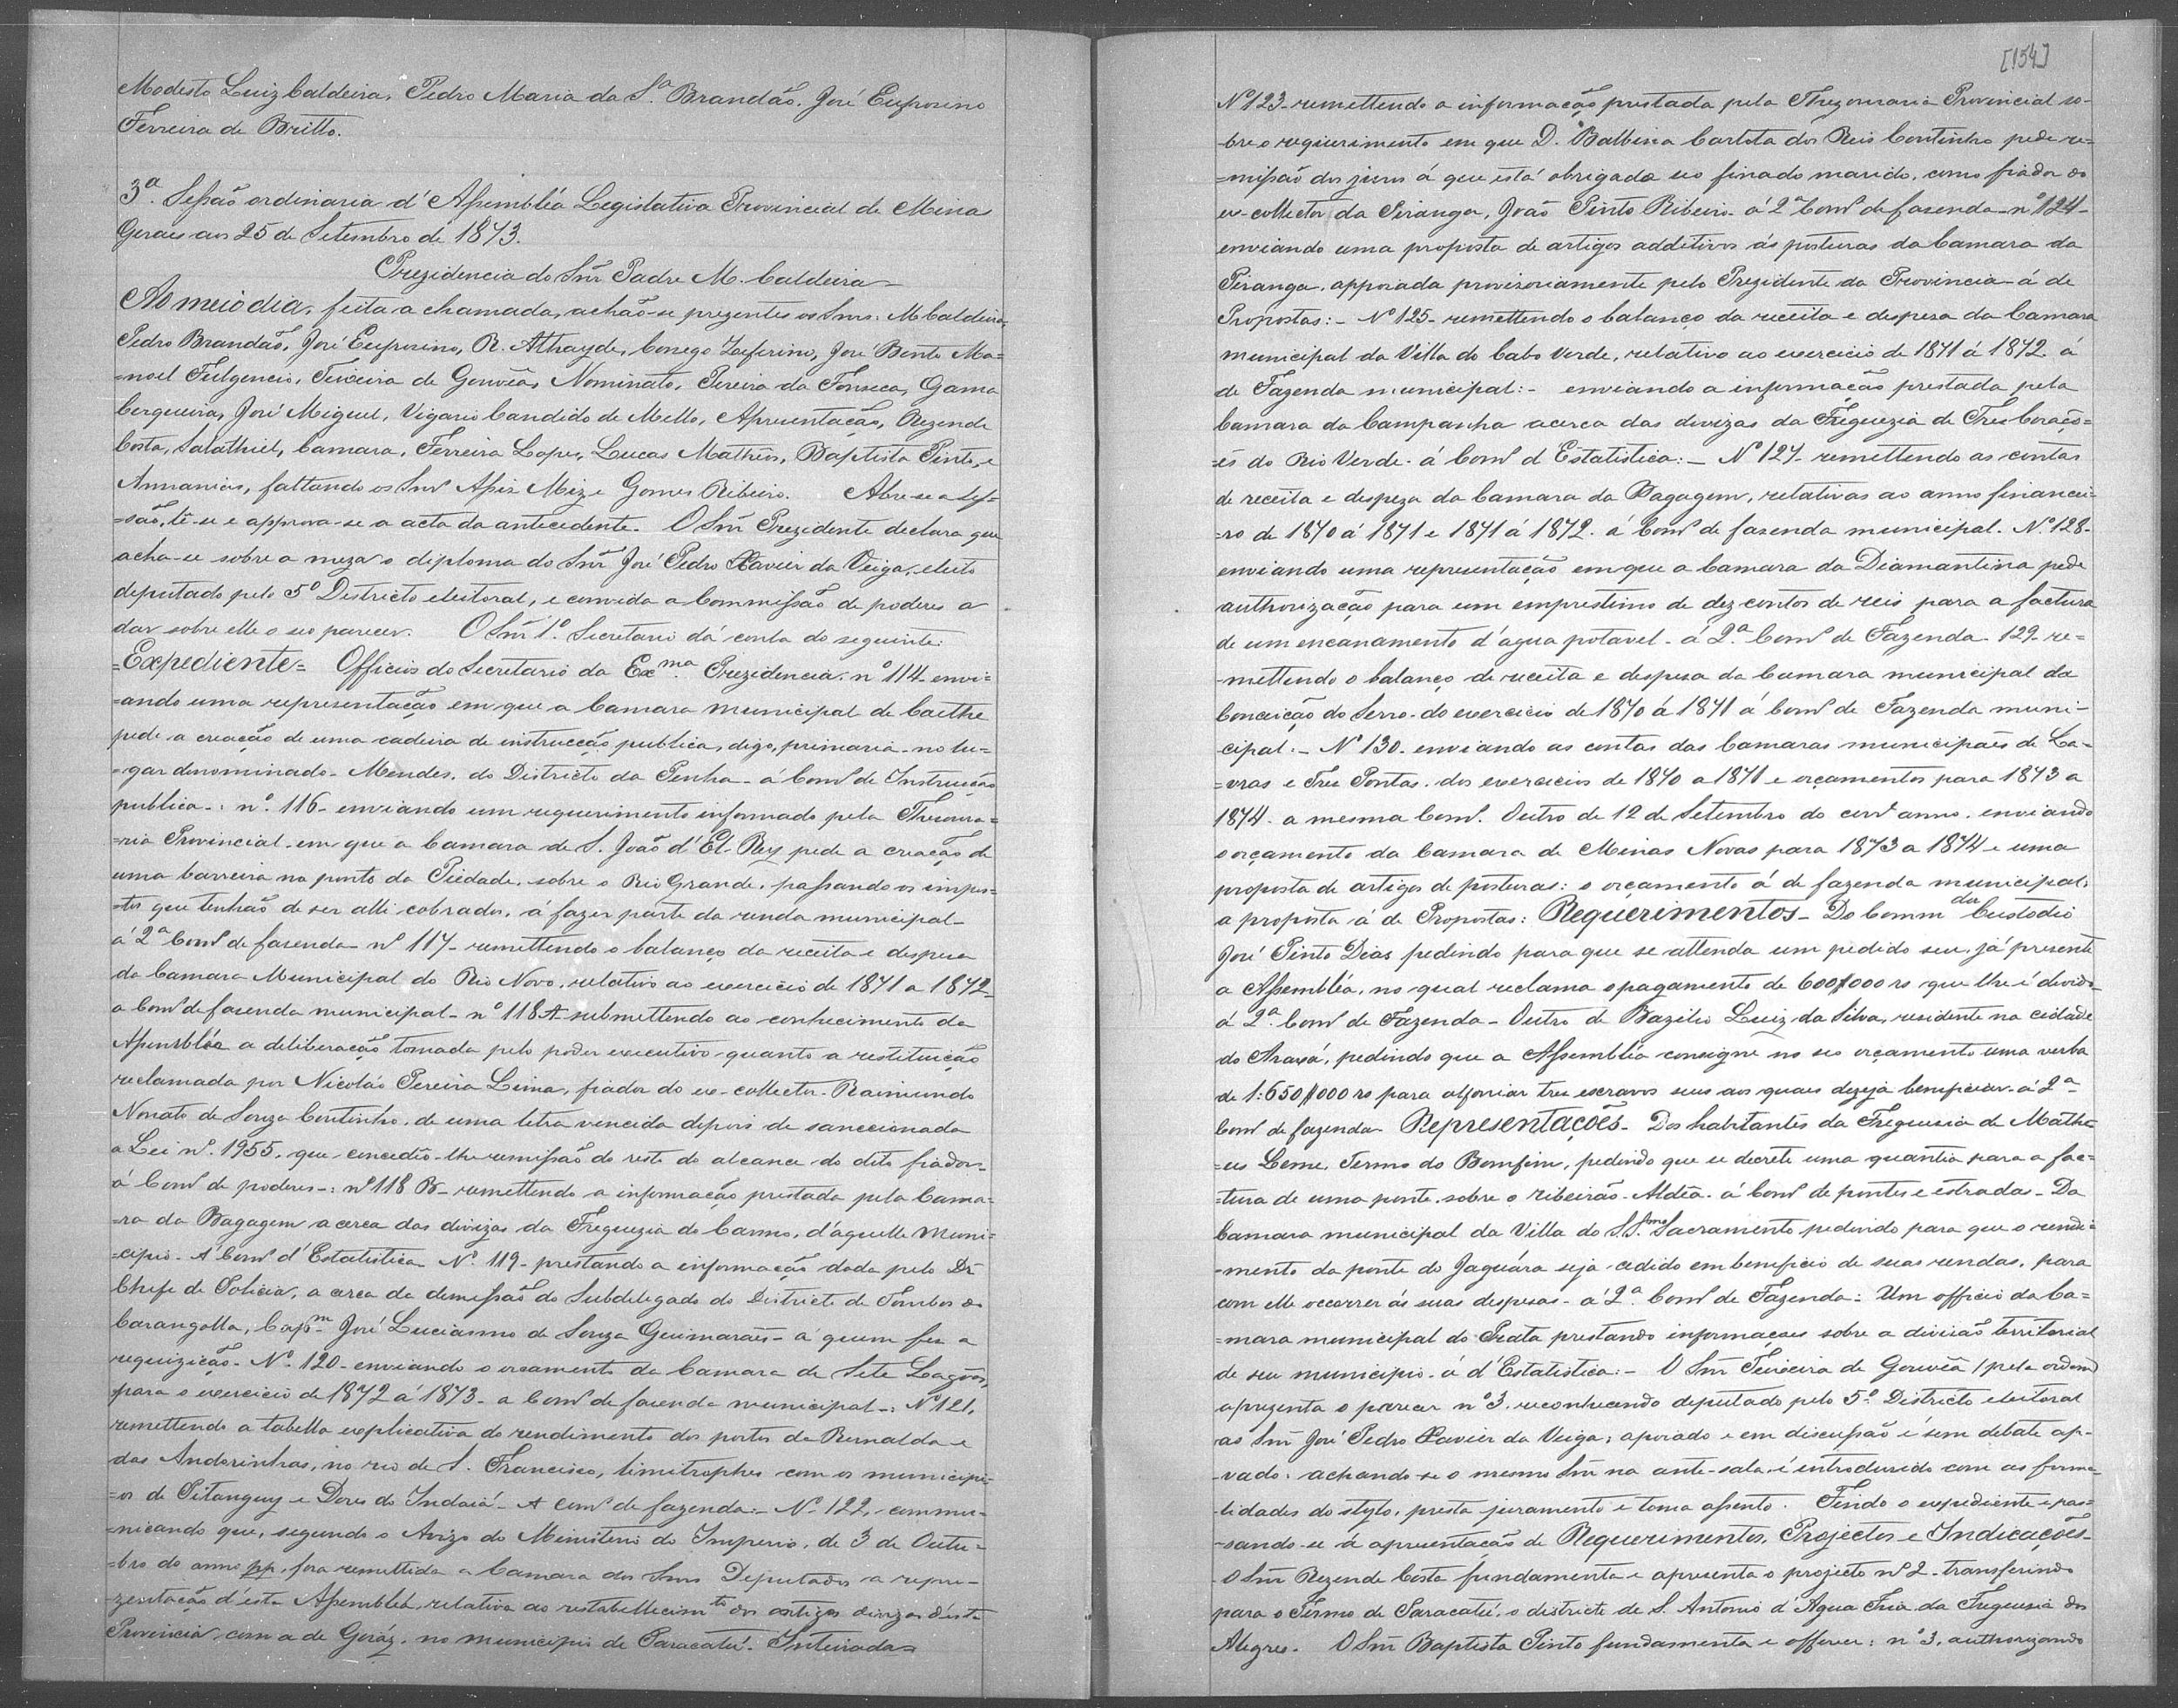 Modesto Luiz Caldeira, Pedro Maria da S.ª Brandão. José Euprosino
Ferreira de Britto.
3ª. Sessão ordinaria d'Assembléa Legislativa Provincial de Minas
Geraes aos 25 de Setembro de 1873.
Prezidencia do Snr Padre M. Caldeira-
Ao meio dia, feita a chamada, achão-se prezentes os Snrs. M. Caldeira,
Pedro Brandão, José Euprosino, R. Athayde, Conego Zeferino, José Bento Ma=
=noel Fulgencio, Teixeira de Gouvêa, Nominato, Pereira da Fonseca, Gama
Cerqueira, José Miguel, Vigario Candido de Mello, Apresentação, Rezende
Costa, Salathiel, Camara, Ferreira Lopes, Lucas Mathêos, Baptista Pinto, e
Annanias, faltando os Snrs Assiz Mize Gomes Ribeiro. Abre-se a ses=
=são, lê-se e approva-se a acta da antecedente. O Snr Prezidente declara que
acha-se sobre a meza o diploma do Snr José Pedro Xavier da Veiga, eleito
deputado pelo 5º Districto eleitoral, e convida a Commissão de poderes a
dar sobre elle o seo parecer. O Snr 1º. Secretario dá conta do seguinte:
=Expediente= Officios do Secretario da Exma. Prezidencia. nº 114- envi=
=ando uma representação em que a Camara municipal de Caethe
pede a creação de uma cadeira de instrucção publica, digo, primaria - no lu=
=gar denominado - Mendes, do Districto da Penha - á Comm. de Instrucção
publica -: nº. 116- enviando um requerimento informado pela Thezoura=
=ria Provincial em que a Camara de S. João d'El-Rey pede a creação de
uma barreira na ponte da Piedade, sobre o Rio Grande, passando os impos=
=tos que tenhão de ser alli cobrados, á fazer parte da renda municipal -
á 2ª Comm. de fazenda - nº 117- remettendo o balanço da receita e despesa
da Camara Municipal do Rio Novo, relativo ao exercicio de 1871 a 1872-
a Comm. de fazenda municipal - nº 118 A- submettendo ao conhecimento da
Assembléa a deliberação tomada pelo poder executivo quanto a restituição
reclamada por Nicoláo Pereira Lima, fiador do ex-collector Raimundo
Nonato de Souza Coutinho, de uma letra vencida depois de sanccionada
a Lei nº. 1955, que concedeo-lhe remissão do resto do alcance do dito fiador -
á Comm. de poderes -: nº 118 B- remettendo a informação prestada pela Cama=
=ra da Bagagem a cerca das divizas da Freguezia do Carmo, d'aquelle Muni=
=cipio - Á Comm. d'Estatistica Nº. 119- prestando a informação dada pelo Dr
Chefe de Policia, a cerca da demissão do Subdelegado do Districto de Tombos do
Carangolla, Capm José Lucianno de Souza Guimarães - a quem fez a
requizição - Nº. 120- enviando o orçamento da Camara de Sete Lagôas,
para o exercicio de 1872 á 1873 - a Comm. de fazenda municipal -: Nº 121,
remettendo a tabella explicativa do rendimento dos portos da Bernalda e
das Andorinhas, no rio de S. Francisco, limitrophes com os municipi=
=os de Pitanguy e Dores do Indaiá - A Comm. de fazenda: - Nº 122, commu-
-nicando que, segundo o Avizo do Ministerio do Imperio, de 3 de Outu-
-bro do anno pp. fora remettida a Camara dos Snrs Deputados a repre-
-zentação d'esta Assembléa, relativa ao restabellecimto das antigas divizas d'esta
Provincia com a de Goyáz, no municipio de Paracatú. Inteirada=
[154]
Nº 123- remettendo a informação prestada pela Thezouraria Provincial so-
-bre o requerimento em que D. Balbina Carlota dos Reis Coutinho pede re=
=missão dos juros á que está obrigado seo finado marido, como fiador do
ex-collector da Piranga, João Pinto Ribeiro - á 2ª Comm. de fazenda - nº 124-
enviando uma proposta de artigos additivos ás posturas da Camara da
Piranga, approvada provisoriamente pelo Prezidente da Provincia - á de
Propostas: - Nº 125- remettendo o balanço da receita e despesa da Camara
municipal da Villa do Cabo Verde, relativo ao exercicio de 1871 á 1872. á
de Fazenda municipal: - enviando a informação prestada pela
Camara da Campanha acerca das divizas da Freguezia de Tres Coraçõ=
=es do Rio Verde - á Comm. d'Estatistica: - Nº 127- remettendo as contas
de receita e despeza da Camara da Bagagem, relativas ao anno financei=
=ro de 1870 á 1871 e 1871 á 1872. á Comm. de fazenda municipal. Nº. 128-
enviando uma representação em que a Camara da Diamantina pede
authorização para um emprestimo de dez contos de reis para a factura
de um encanamento d'agua potavel - á 2.ª Comm. de Fazenda - 129- re=
-mettendo o balanço de receita e despesa da Camara municipal da
Conceição do Serro - do exercicio de 1870 á 1871 á Comm. de Fazenda muni-
cipal: - Nº 130- enviando as contas das Camaras municipaes de La-
=vras e Tres Pontas, dos exercicios de 1870 a 1871 e orçamentos para 1873 a
1874 - a mesma Comm. Outro de 12 de Setembro do corre anno, enviando
o orçamento da Camara de Minas Novas para 1873 a 1874 e uma
proposta de artigos de posturas: o orçamento á de fazenda municipal,
a proposta á de Propostas: Requerimentos - Do Commdor Custodio
José Pinto Dias pedindo para que se attenda um pedido seu, já presente
a Assembléa, no qual reclama o pagamento de 600$000 rs que lhe é devido -
á 2ª. Comm. de Fazenda - Outro de Bazilio Luiz da Silva, residente na cidade
do Araxá, pedindo que a Assembléa consigne no seo orçamento uma verba
de 1:650$000 rs para alforriar tres escravos seus aos quaes dezeja beneficiar - á 2ª
Comm. de fazenda - Representações - Dos habitantes da Freguesia de Mathe=
=us Leme, Termo do Bomfim, pedindo que se decrete uma quantia para a fac=
=tura de uma ponte sobre o ribeirão - Aldêa - á Comm. de pontes e estradas - Da
Camara municipal da Villa do SSmo Sacramento pedindo para que o rendi=
-mento da ponte do Jaguára seja cedido em beneficio de suas rendas, para
com elle occorrer ás suas despesas - á 2ª. Comm. de Fazenda: Um officio da Ca=
=mara municipal do Prata prestando informações sobre a divisão territorial
de seu municipio - á d'Estatistica: - O Snr Teixeira de Gouvêa (pela ordem)
aprezenta o parecer nº 3, reconhecendo deputado pelo 5º. Districto eleitoral
ao Snr José Pedro Xavier da Veiga; apoiado e em discussão é sem debate ap-
-vado: achando-se o mesmo Snr na ante-sala, é introdusido com as forma-
-lidades do stylo, presta juramento e toma assento. Findo o expediente e pas=
-sando-se á apresentação de Requerimentos, Projectos e Indicações -
O Snr Rezende Costa fundamenta e apresenta o projecto nº 2 - transferindo
para o Termo de Paracatú, o districto de S. Antonio d'Agua Fria da Freguesia dos
Alegres. O Snr Baptista Pinto fundamenta e offerece: nº 3, authorizando